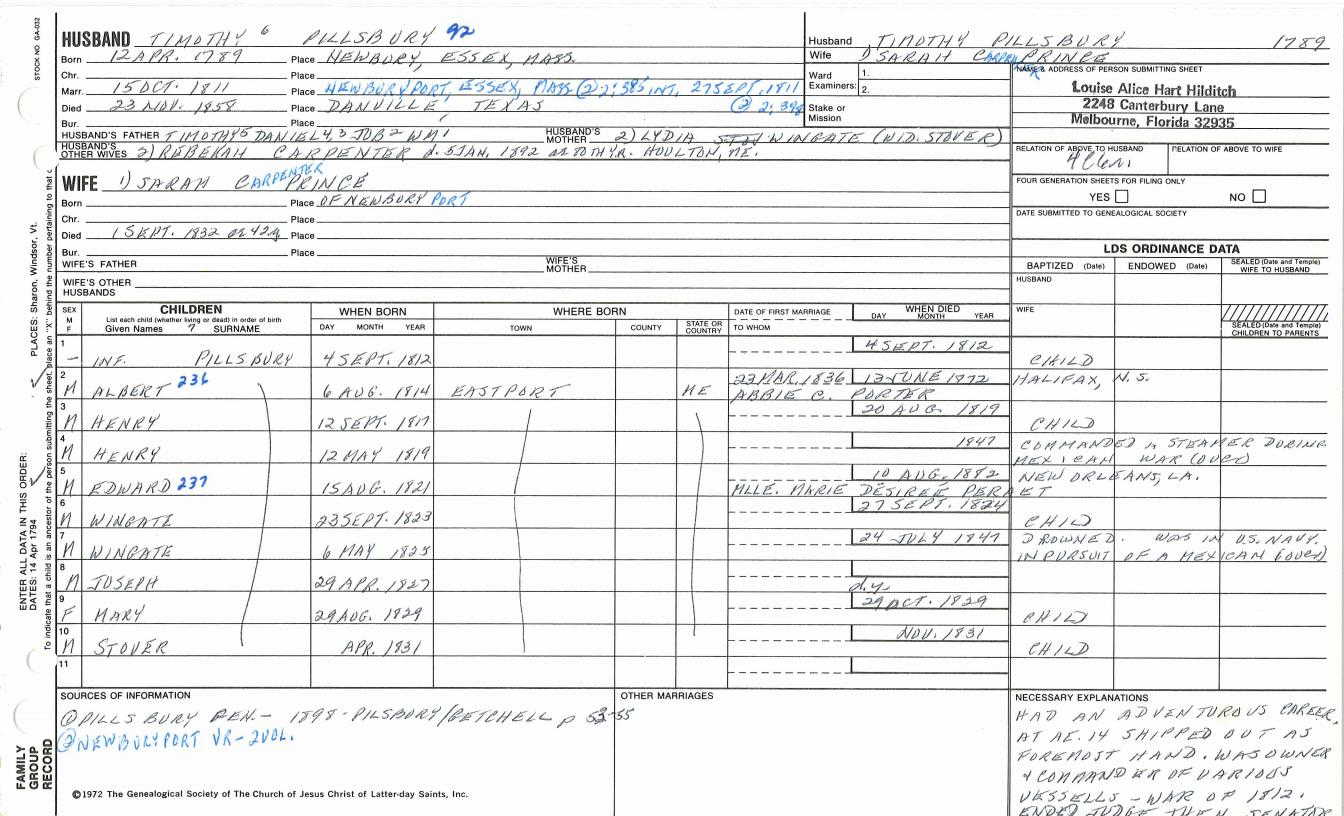 HUSBAND TIMOTHY 6 PILLSBURY 92
Born 12 APR. 1789 Place NEWBURY, ESSEX, MASS.
Chr. Place
Marr. 15 OCT. 1811 Place NEWBURYPORT, ESSEX, MASS (2) 2:385 INT. 27 SEPT. 1811
Died 23 NOV. 1858 Place DANVILLE, TEXAS (2) 2:392
Bur. Place
HUSBAND'S FATHER TIMOTHY5 DANIEL4,3 JOB2 WM1 HUSBAND'S MOTHER 2) LYDIA WINGATE (WID. STOVER)
HUSBAND'S OTHER WIVES 2) REBEKAH CARPENTER d. 5 JAN. 1892 HOULTON, ME.
Husband TIMOTHY PILLSBURY 1789
Wife 1) SARAH PRINCE
Ward Examiners: 1.
2.
Stake or Mission
NAME & ADDRESS OF PERSON SUBMITTING SHEET
Louise Alice Hart Hilditch
2248 Canterbury Lane
Melbourne, Florida 32935
RELATION OF ABOVE TO HUSBAND RELATION OF ABOVE TO WIFE
FOUR GENERATION SHEETS FOR FILING ONLY
YES NO
DATE SUBMITTED TO GENEALOGICAL SOCIETY
WIFE 1) SARAH CARPENTER PRINCE
Born Place OF NEWBURY PORT
Chr. Place
Died 1 SEPT. 1832 Place
Bur. Place
WIFE'S FATHER WIFE'S MOTHER
WIFE'S OTHER HUSBANDS
LDS ORDINANCE DATA
BAPTIZED (Date) ENDOWED (Date) SEALED (Date and Temple) WIFE TO HUSBAND
HUSBAND
WIFE
SEALED (Date and Temple) CHILDREN TO PARENTS
SEX M F CHILDREN WHEN BORN WHERE BORN DATE OF FIRST MARRIAGE WHEN DIED
List each child (whether living or dead) in order of birth
Given Names 7 SURNAME DAY MONTH YEAR TOWN COUNTY STATE OR COUNTRY TO WHOM DAY MONTH YEAR
1 — INF. PILLSBURY 4 SEPT. 1812 4 SEPT. 1812 CHILD
2 M ALBERT 236 6 AUG. 1814 EASTPORT ME 23 MAR. 1836 13 JUNE 1872 HALIFAX, N.S.
ABBIE C. PORTER
3 M HENRY 12 SEPT. 1817 20 AUG. 1819 CHILD
4 M HENRY 12 MAY 1819 1847 COMMANDED A STEAMER DURING
MEXICAN WAR (OVER)
5 M EDWARD 237 15 AUG. 1821 10 AUG. 1882 NEW ORLEANS, LA.
MLLE. MARIE DESIREE PERAET
6 M WINGATE 23 SEPT. 1823 27 SEPT. 1824 CHILD
7 M WINGATE 6 MAY 1825 24 JULY 1847 DROWNED. WAS IN U.S. NAVY.
IN PURSUIT OF A MEXICAN (OVER)
8 M JOSEPH 29 APR. 1827 d.y.
9 F MARY 29 AUG. 1829 29 OCT. 1829 CHILD
10 M STOVER APR. 1831 NOV. 1831 CHILD
11
SOURCES OF INFORMATION OTHER MARRIAGES
① PILLSBURY GEN. - 1898 - PILSBURY/GETCHELL p 53-55
② NEWBURYPORT VR - 2VOL.
NECESSARY EXPLANATIONS
HAD AN ADVENTUROUS CAREER,
AT AE. 14 SHIPPED OUT AS
FOREMOST HAND. WAS OWNER
& COMMANDER OF VARIOUS
VESSELLS - WAR OF 1812.
ENDED JUDGE THEN SENATOR
©1972 The Genealogical Society of The Church of Jesus Christ of Latter-day Saints, Inc.
STOCK NO. GA-032
PLACES: Sharon, Windsor, Vt.
ENTER ALL DATA IN THIS ORDER:
DATES: 14 Apr 1794
To indicate that a child is an ancestor of the person submitting the sheet, place an "X" behind the number pertaining to that c
FAMILY
GROUP
RECORD